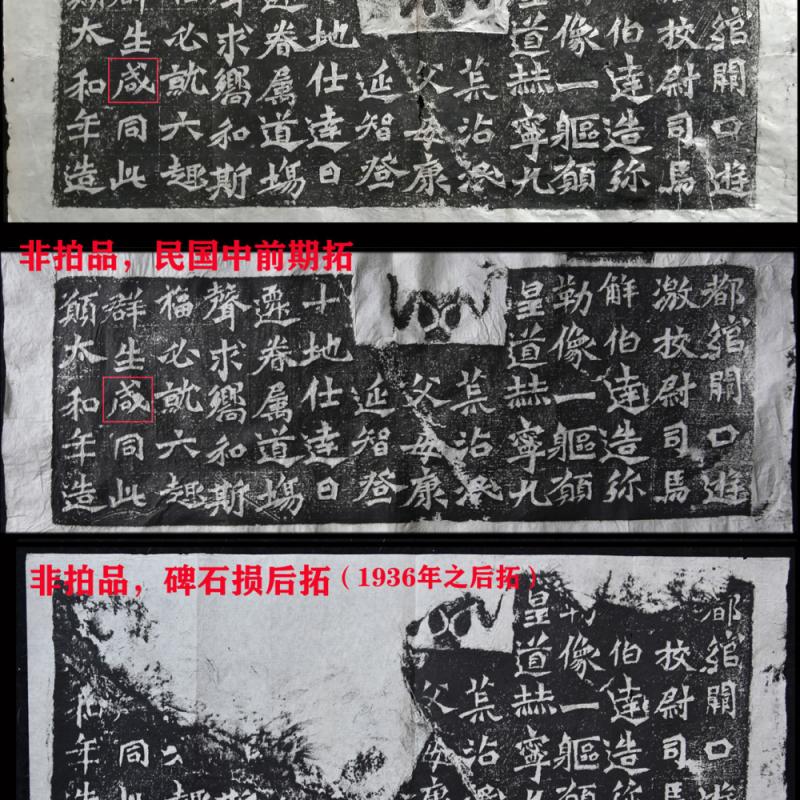 綰闕口遊
校尉司馬
伯達造弥
像一軀願
道赫寧九
荒沾泽
父母康
延智登
地仕達日
眷属道場
求嚮和斯
必就六趣
生咸同此
太和年造
非拍品，民国中前期拓
都綰闕口遊
激校尉司馬
解伯達造弥
勒像一軀願
皇道赫寧九
荒沾泽
父母康
延智登
十地仕達日
遷眷属道場
聲求嚮和斯
福必就六趣
群生咸同此
願太和年造
非拍品，碑石损后拓（1936年之后拓）
都綰闕口
校尉司
伯達造
像一軀
皇道赫寧
荒沾
父母康
同
和年